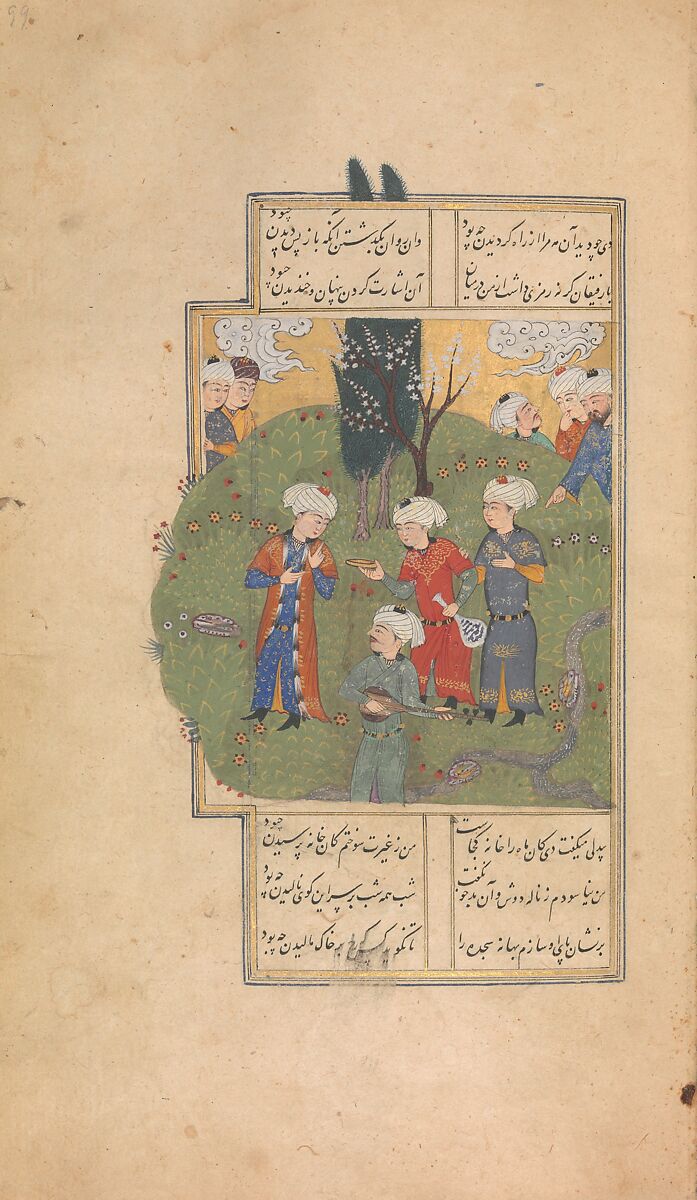 99
دی چو دید آن مه مرا از راه گردیدن چه بود وان روان بگذشتن آنگه باز پس دیدن چه بود
با رفیقان گر نه رمزی داشت از من در میان آن اشارت کردن پنهان و خندیدن چه بود
بیدلی میگفت دی کان ماه را خانه کجاست من ز غیرت سوختم کان خانه پرسیدن چه بود
من نیاسودم ز ناله دوش و آن بدخو نگفت شب همه شب بر سر این کوی نالیدن چه بود
بر نشان پای او سازم بهانه سجده را تا نگوید کس بر خاک مالیدن چه بود